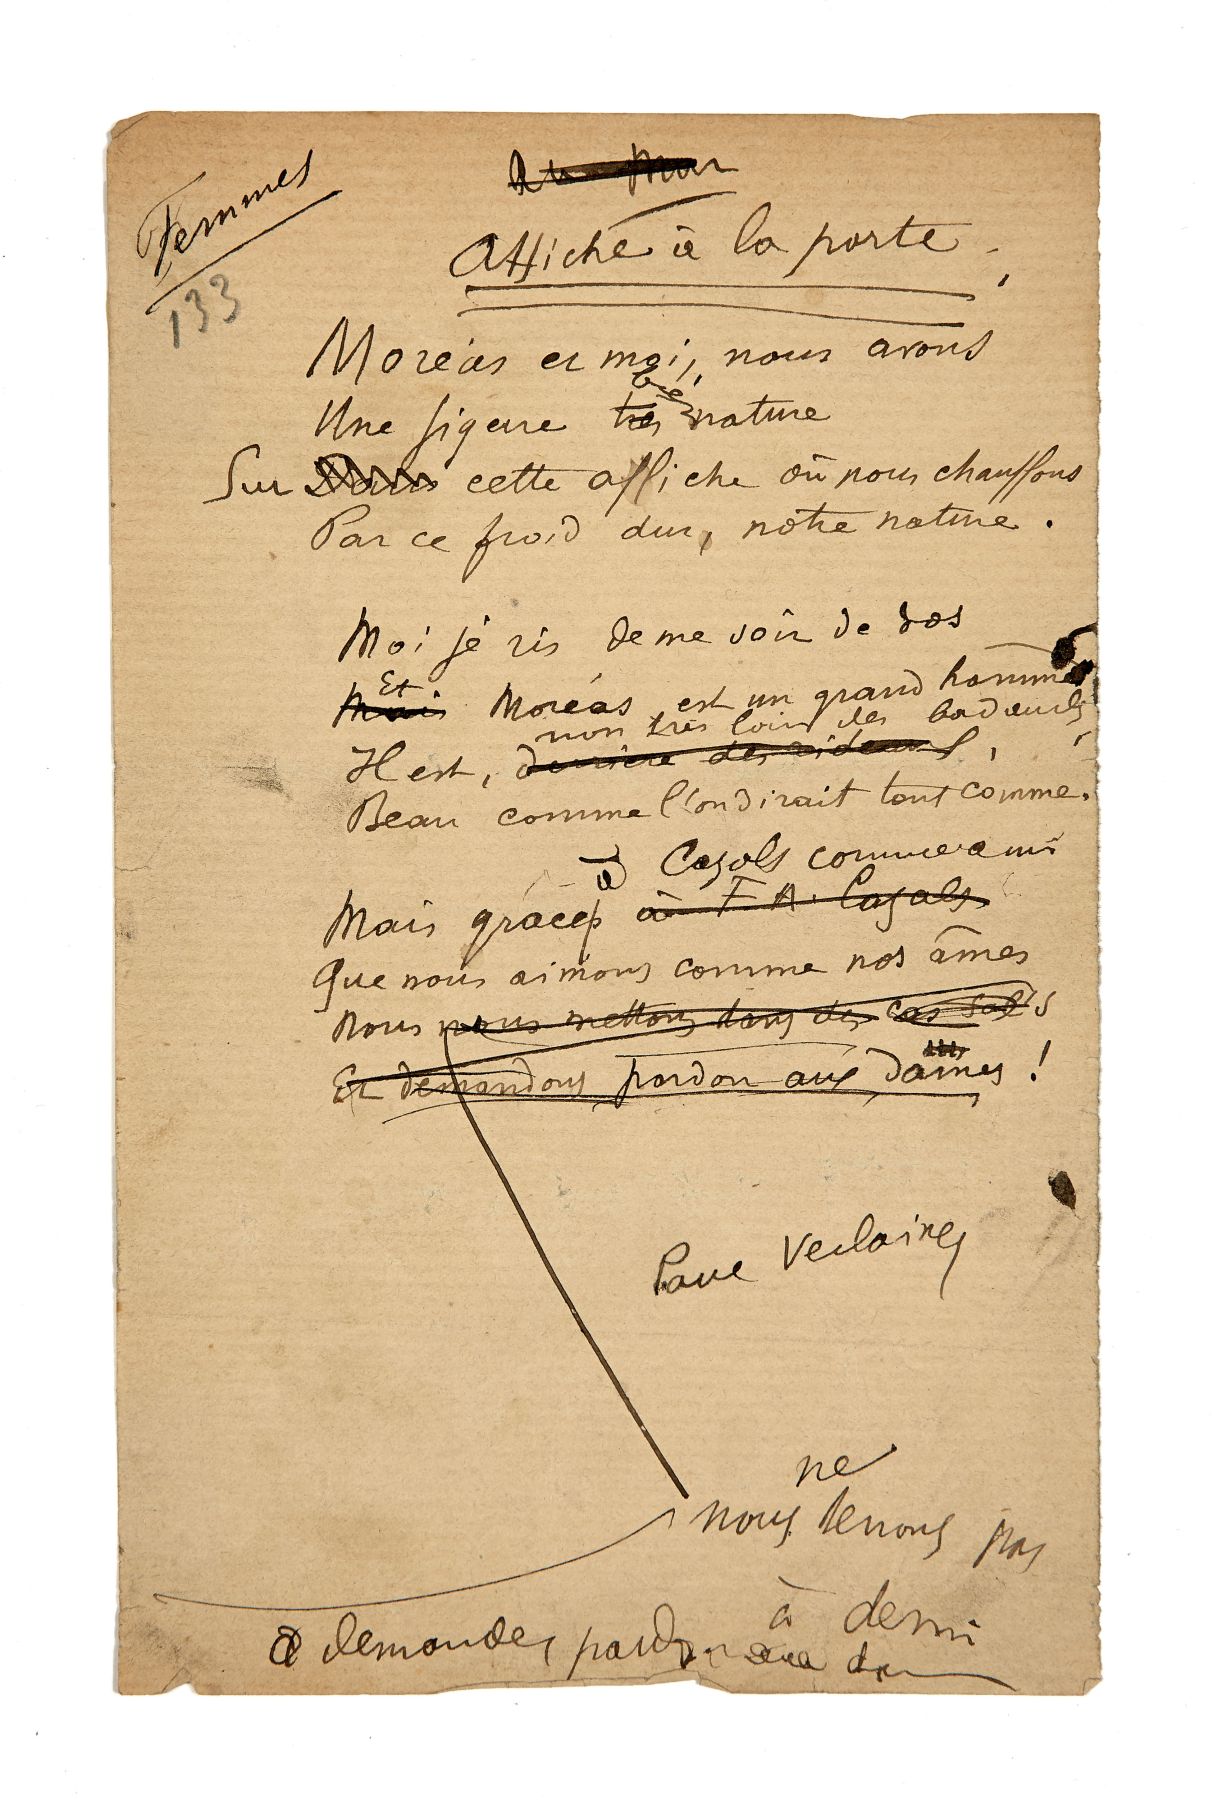 Femmes
133
Au Mur
Affiché à la porte.
Moréas et moi, nous avons
Une figure très nature
Sur Dans cette affiche où nous chauffons
Par ce froid dur, notre nature.
Moi je ris de me voir de dos
Et
Mais Moréas est un grand homme
non très loin des badauds,
Il est, derrière des rideaux,
Beau comme l'on dirait tout comme.
à Cazals comme ami
Mais grâce à F. A. Cazals
Que nous aimons comme nos âmes
Nous nous mettons dans des cas sales
Et demandons pardon aux dames !
Paul Verlaine
ne
nous tenons pas
à demi
à demander pardon aux